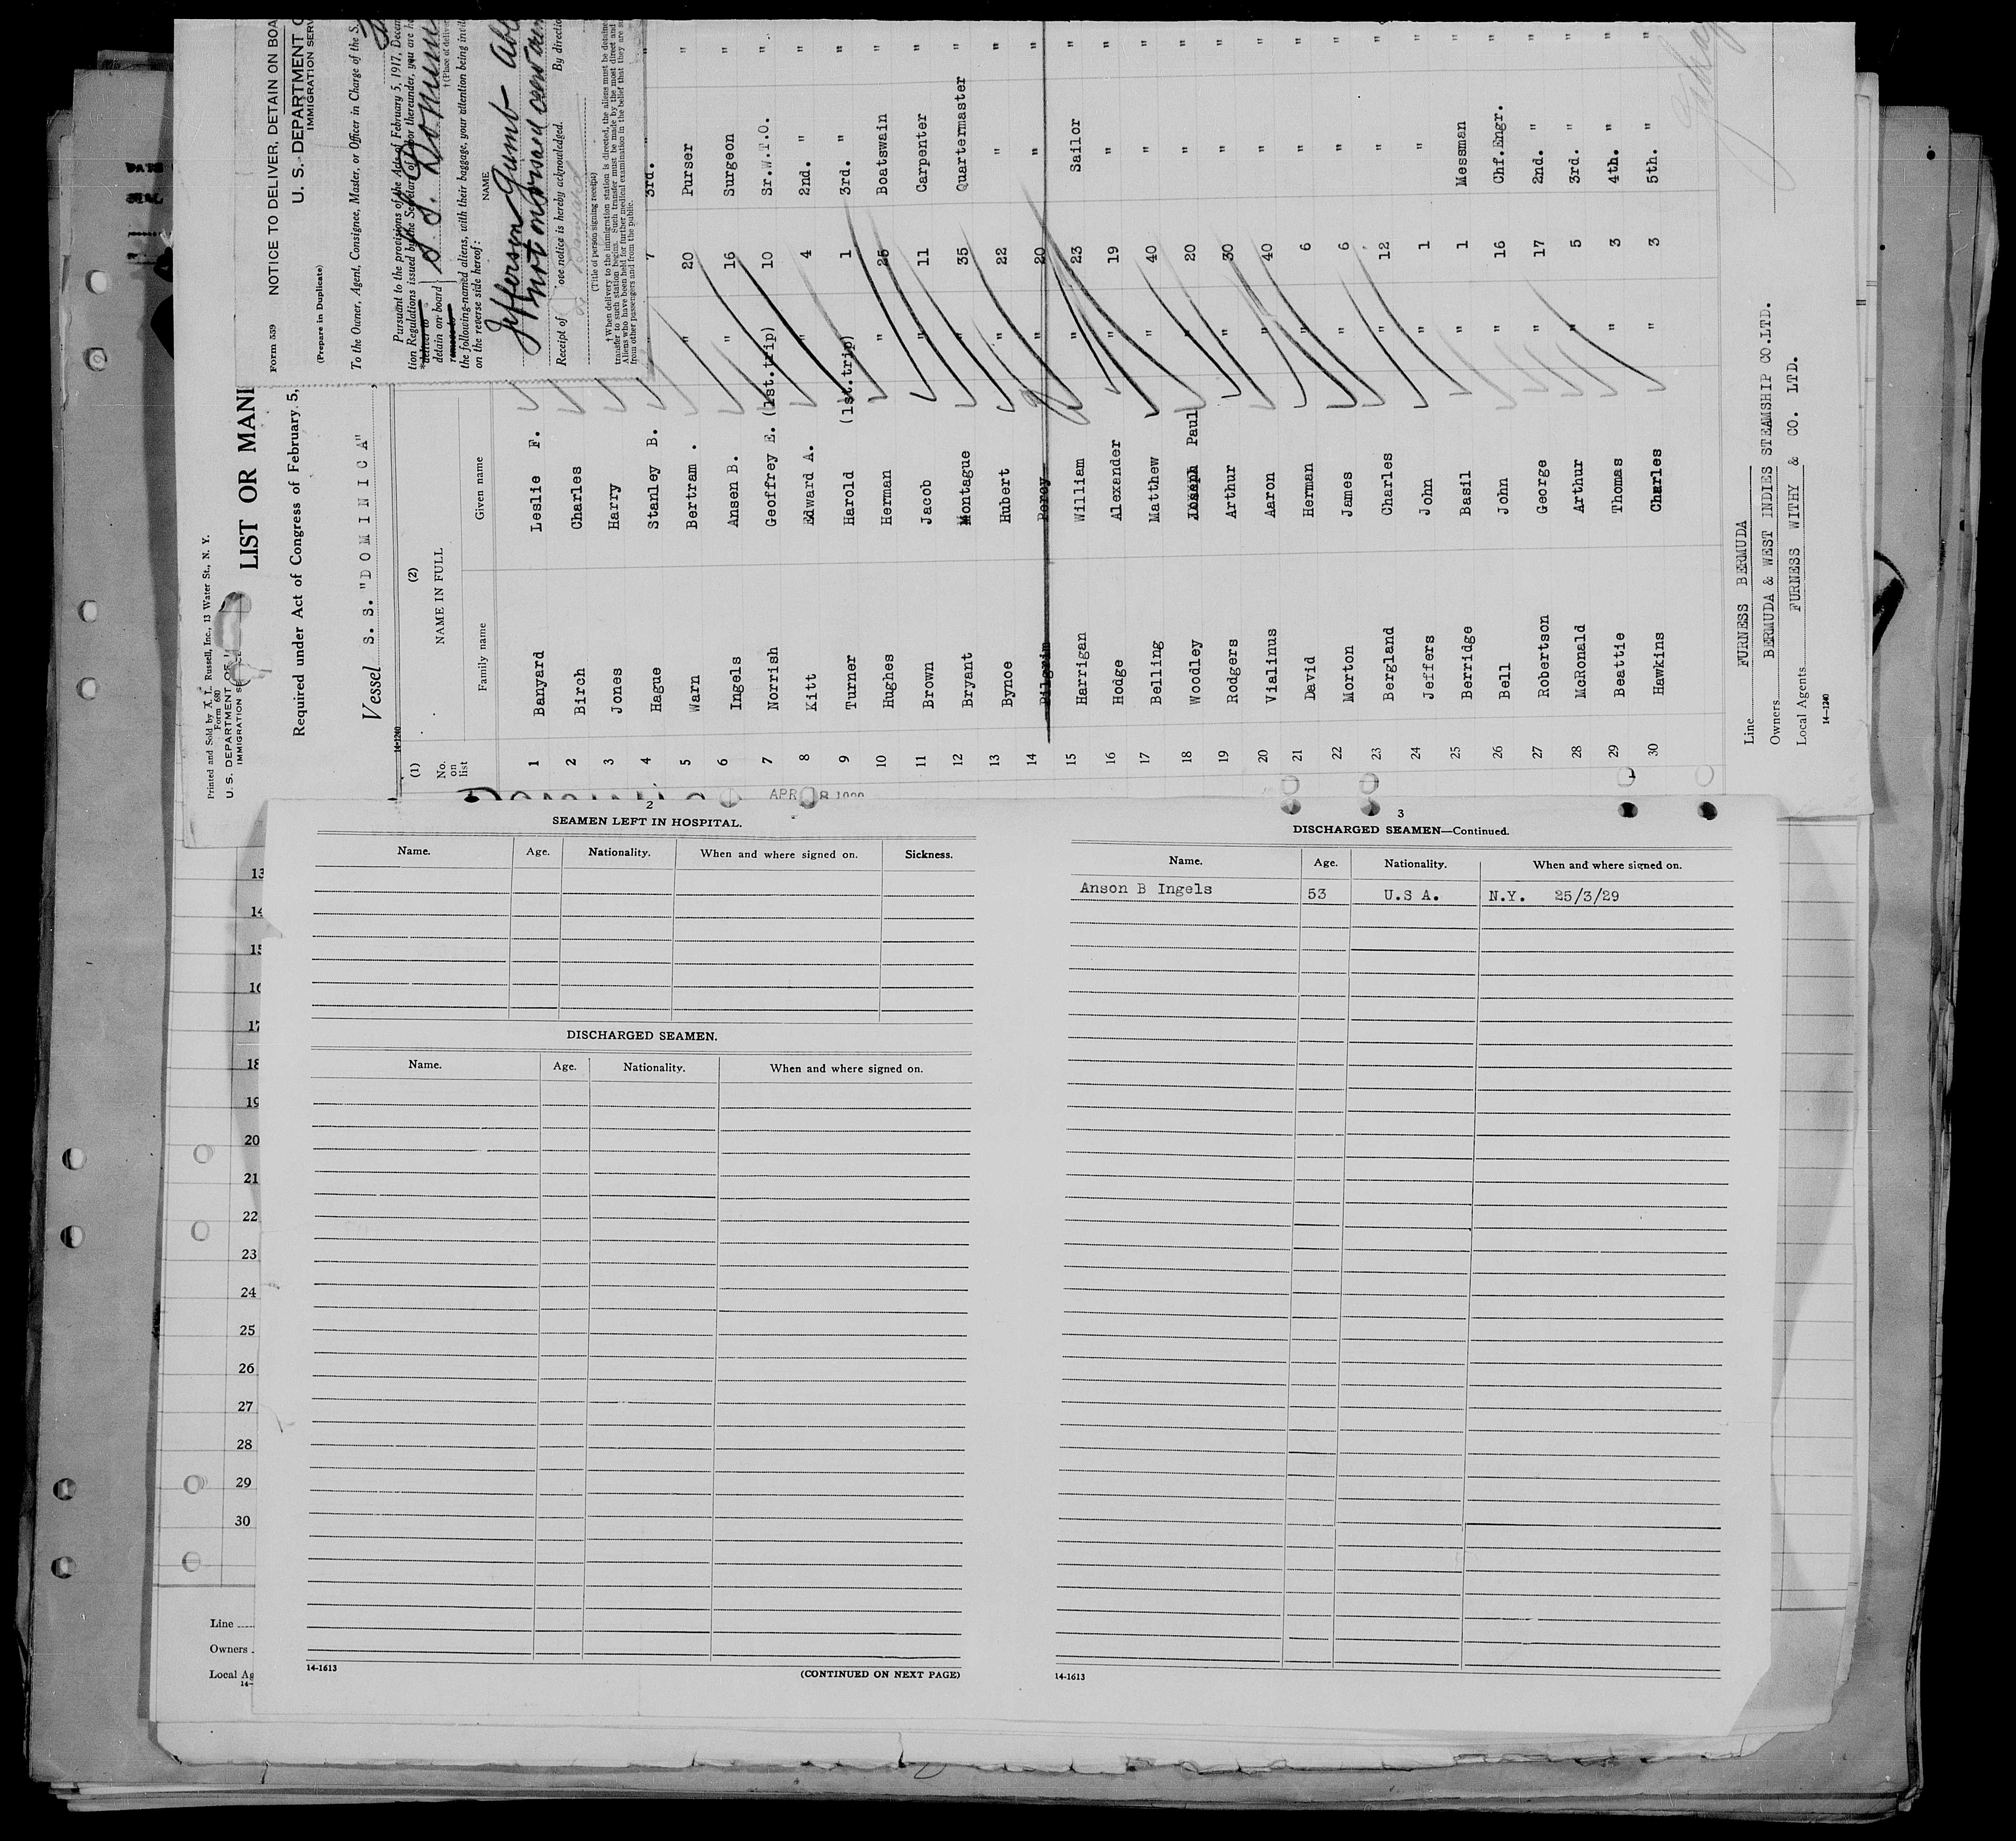 Form 559
NOTICE TO DELIVER, DETAIN ON BOA
U. S. DEPARTMENT O
IMMIGRATION SERV
(Prepare in Duplicate)
To the Owner, Agent, Consignee, Master, or Officer in Charge of the S.
Pursuant to the provisions of the Act of February 5, 1917,
tion Regulations issued by the Secretary of Labor thereunder, you are he
deliver to
detain on board
† (Place of deliver
the following-named aliens, with their baggage, your attention being invit
on the reverse side hereof:
NAME
Jefferson Gumb
Receipt of
ove notice is hereby acknowledged.
By directio
(Title of person signing receipt)
† When delivery to the immigration station is directed, the aliens must be detaine
transfer to such station begins. Such transfer must be made by the most direct and
Aliens who have been held for further medical examination in the belief that they are su
from other passengers and from the public.
Printed and Sold by X. L. Russell, Inc., 13 Water St., N. Y.
Form 680
U. S. DEPARTMENT OF
IMMIGRATION SE
LIST OR MANI
Required under Act of Congress of February 5,
Vessel S. S. "D O M I N I C A"
14-1240
(1) (2)
No. on list
NAME IN FULL
Family name Given name
1 Banyard Leslie F.
2 Birch Charles
3 Jones Harry
4 Hague Stanley B. " 7 3rd. " "
5 Warn Bertram . " 20 Purser "
6 Ingels Ansen B. " 16 Surgeon "
7 Norrish Geoffrey E. (1st.trip) 10 Sr.W.T.O. "
8 Kitt Edward A. " 4 2nd. " "
9 Turner Harold (1st.trip) 1 3rd. " "
10 Hughes Herman " 25 Boatswain "
11 Brown Jacob " 11 Carpenter "
12 Bryant Montague " 35 Quartermaster "
13 Bynoe Hubert " 22 " "
14 Pilgrim Percy " 20 " "
15 Harrigan William " 23 Sailor "
16 Hodge Alexander " 19 " "
17 Belling Matthew " 40 " "
18 Woodley Joseph Paul " 20 " "
19 Rodgers Arthur " 30 " "
20 Vialinus Aaron " 40 " "
21 David Herman " 6 " "
22 Morton James " 6 " "
23 Bergland Charles " 12 " "
24 Jeffers John " 1 " "
25 Berridge Basil " 1 Messman "
26 Bell John " 16 Chf.Engr. "
27 Robertson George " 17 2nd. " "
28 McRonald Arthur " 5 3rd. " "
29 Beattie Thomas " 3 4th. " "
30 Hawkins Charles " 3 5th. " "
Line FURNESS BERMUDA
Owners BERMUDA & WEST INDIES STEAMSHIP CO.LTD.
Local Agents FURNESS WITHY & CO. LTD.
14-1240
APR
2
SEAMEN LEFT IN HOSPITAL.
Name. Age. Nationality. When and where signed on. Sickness.
DISCHARGED SEAMEN.
Name. Age. Nationality. When and where signed on.
14-1613
(CONTINUED ON NEXT PAGE)
3
DISCHARGED SEAMEN—Continued.
Name. Age. Nationality. When and where signed on.
Anson B Ingels 53 U.S A. N.Y. 25/3/29
14-1613
13
14
15
16
17
18
19
20
21
22
23
24
25
26
27
28
29
30
Line
Owners
Local Ag
14-